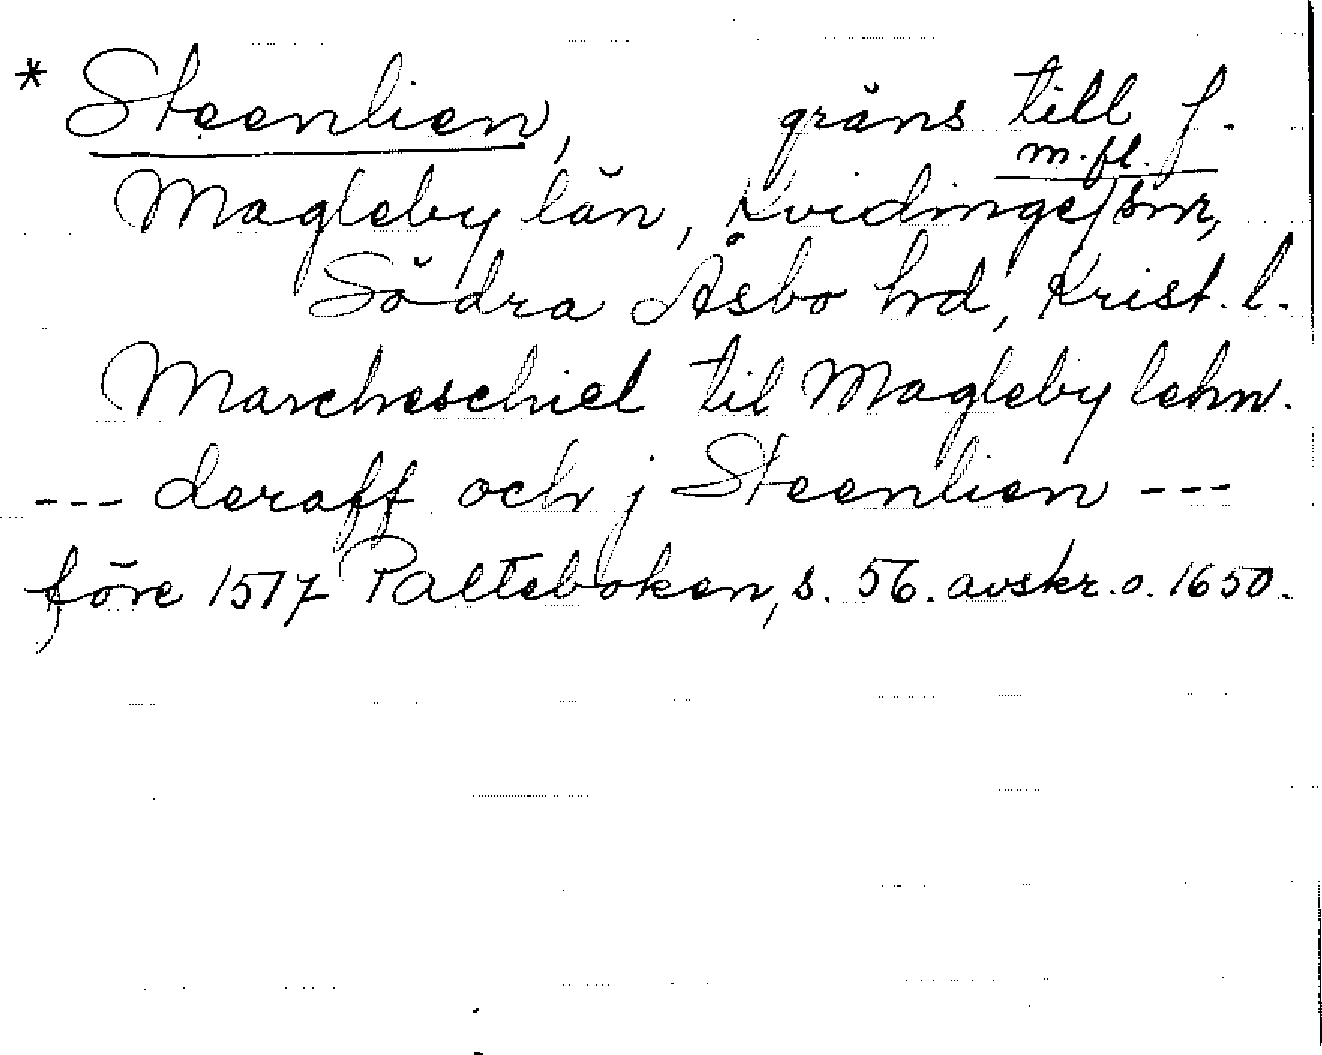 * Steenlien, gräns till f.
m.fl.
Magleby län, Kvidinge snr,
Södra Åsbo hd, Krist. l.
Marcheschiel til Magleby lehn.
--- deraff och j Steenlien ---
före 1517 Palteboken, s. 56. avskr. o. 1650.